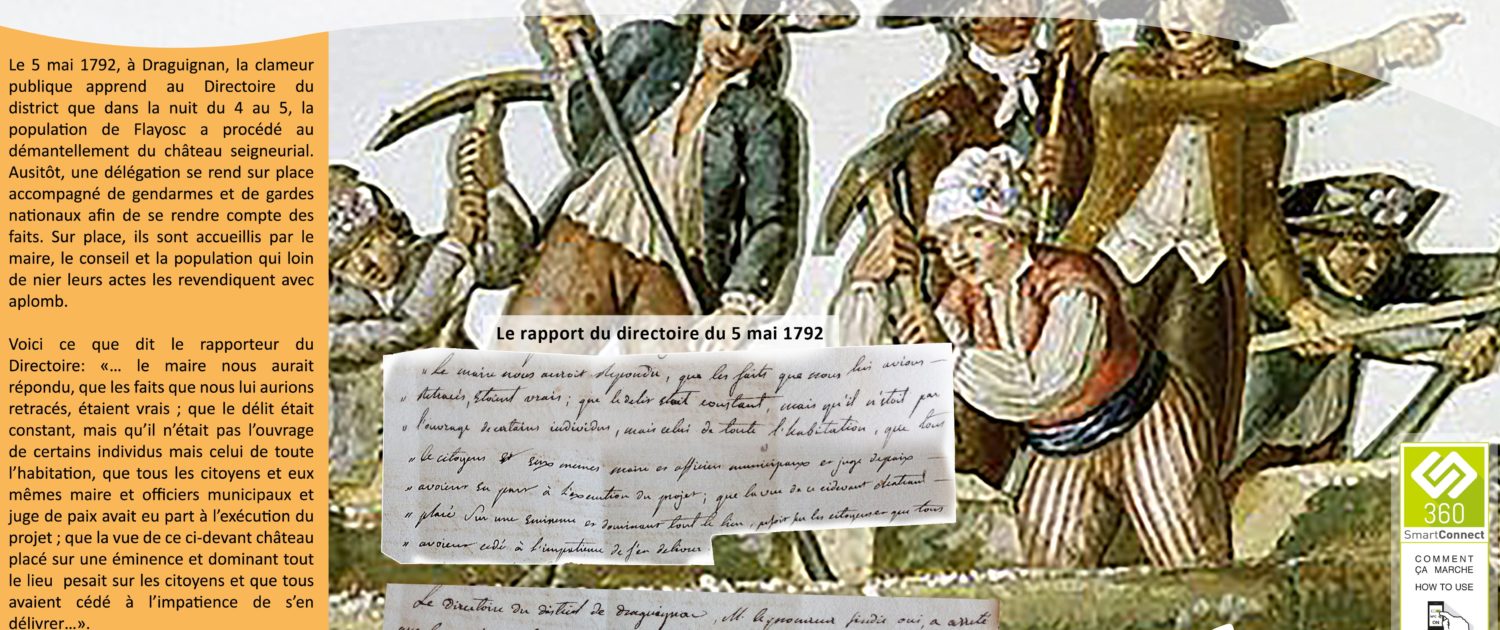 Le 5 mai 1792, à Draguignan, la clameur
publique apprend au Directoire du
district que dans la nuit du 4 au 5, la
population de Flayosc a procédé au
démantellement du château seigneurial.
Ausitôt, une délégation se rend sur place
accompagné de gendarmes et de gardes
nationaux afin de se rendre compte des
faits. Sur place, ils sont accueillis par le
maire, le conseil et la population qui loin
de nier leurs actes les revendiquent avec
aplomb.
Voici ce que dit le rapporteur du
Directoire: «... le maire nous aurait
répondu, que les faits que nous lui aurions
retracés, étaient vrais ; que le délit était
constant, mais qu'il n'était pas l'ouvrage
de certains individus mais celui de toute
l'habitation, que tous les citoyens et eux
mêmes maire et officiers municipaux et
juge de paix avait eu part à l'exécution du
projet ; que la vue de ce ci-devant château
placé sur une éminence et dominant tout
le lieu pesait sur les citoyens et que tous
avaient cédé à l'impatience de s'en
délivrer...».
Le rapport du directoire du 5 mai 1792
" Le maire nous auroit repondu, que les faits que nous lui avions
" retracés, étoient vrais ; que le delit étoit constant, mais qu'il n'étoit pas
" l'ouvrage de certains individus, mais celui de toute l'habitation, que tous
" les citoyens et eux memes maire et officiers municipaux et juge de paix
" avoient eu part à l'execution du projet ; que la vue de ce cidevant chateau
" placé sur une eminence et dominant tout le lieu, pesoit sur les citoyens et que tous
" avoient cedé à l'impatience de s'en delivrer
Le Directoire du district de draguignan, M. le procureur sindic oui, a arreté
360
SmartConnect
COMMENT
ÇA MARCHE
HOW TO USE